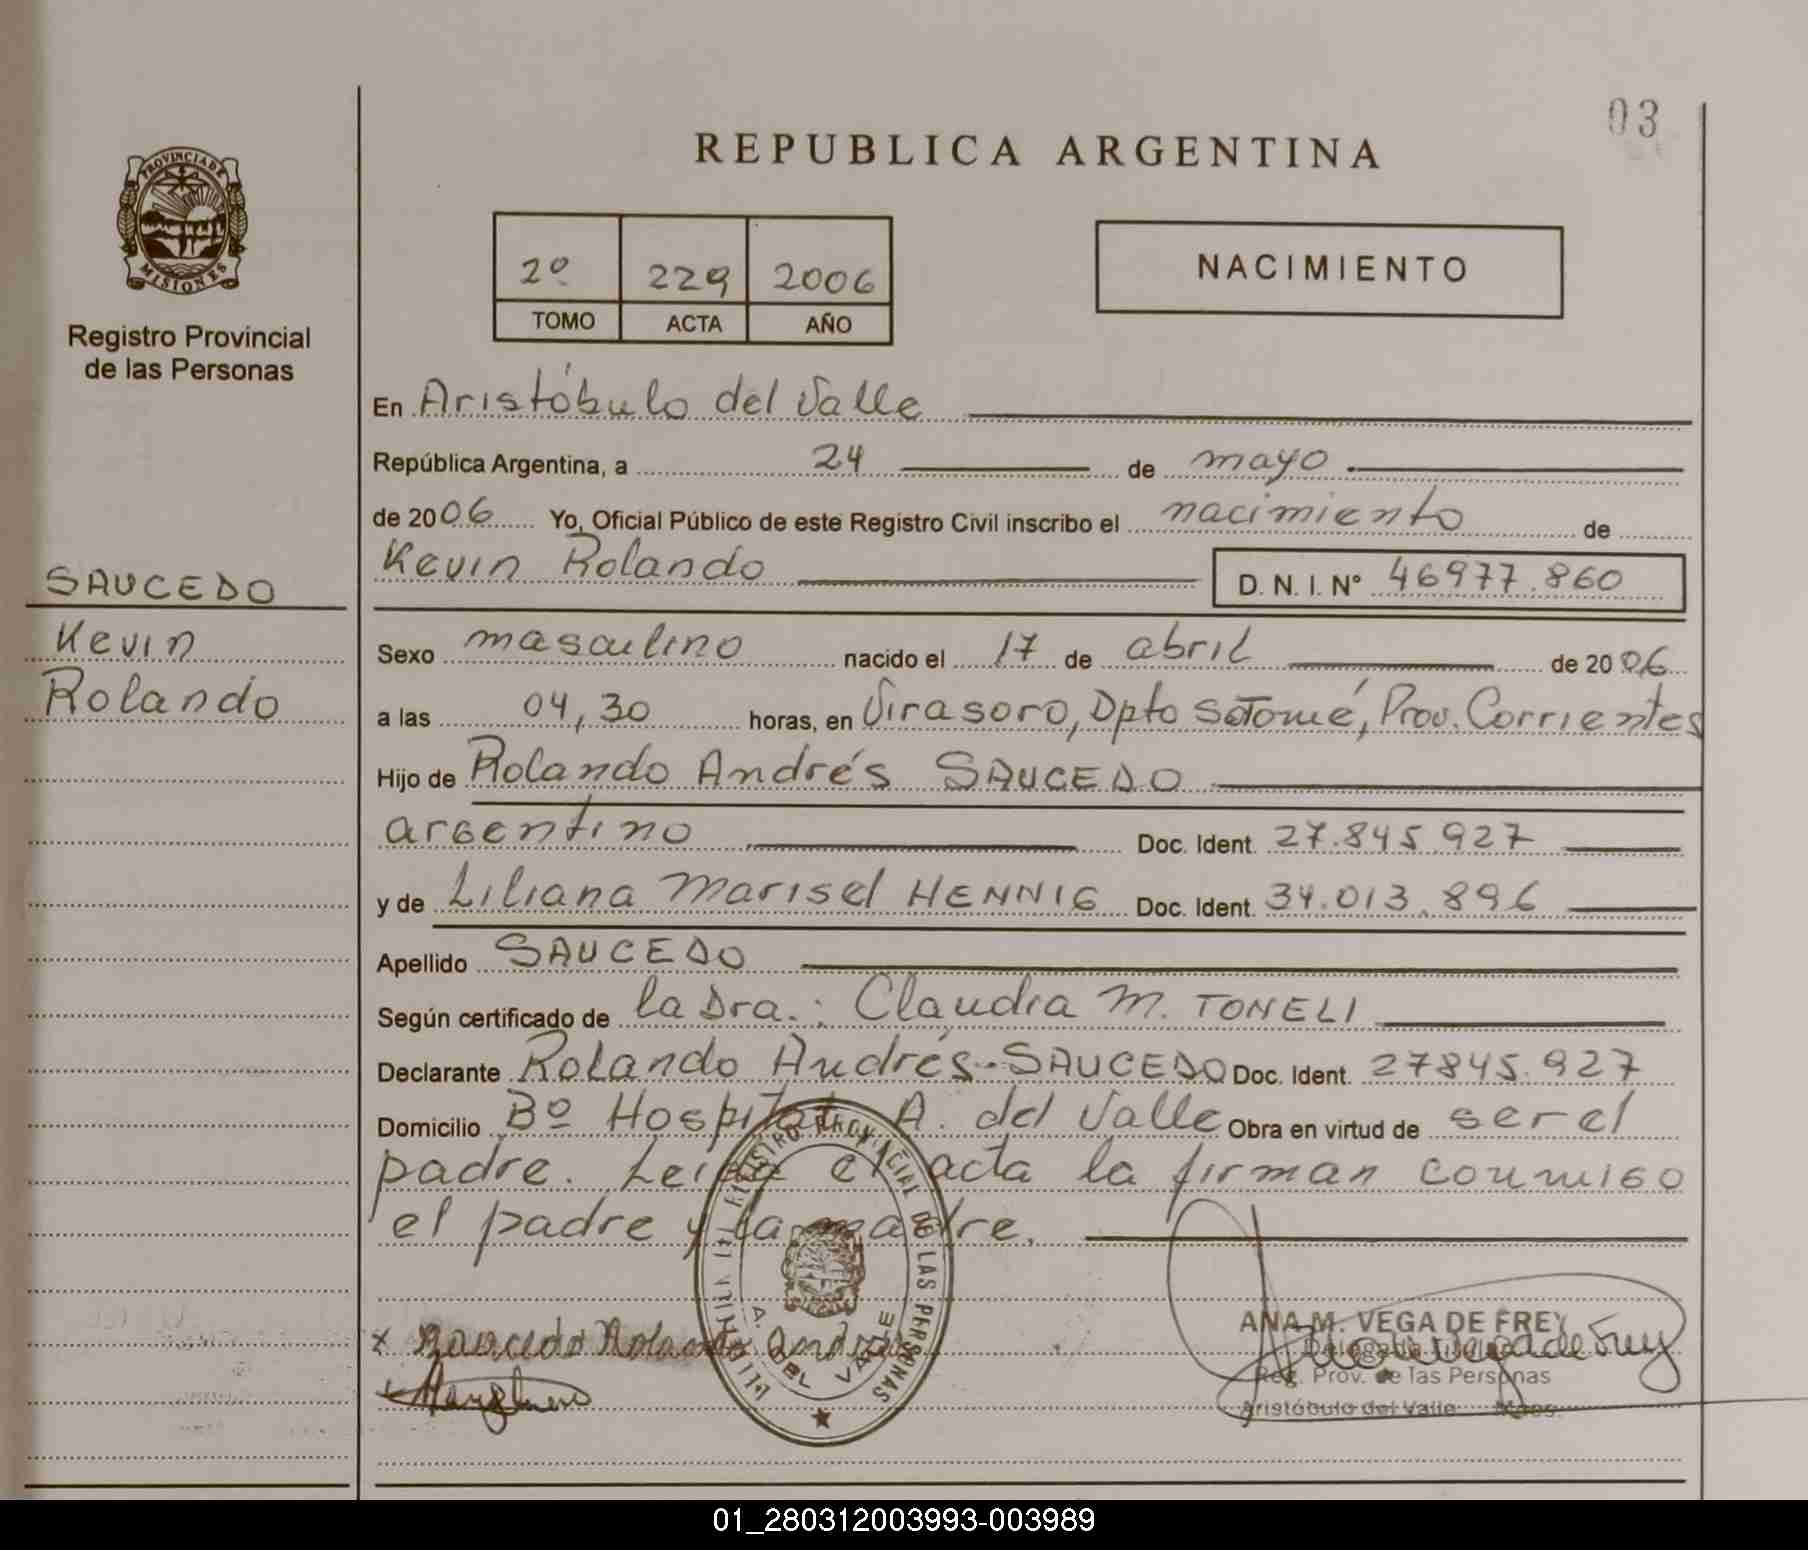 03
REPUBLICA ARGENTINA
PROVINCIA DE
MISIONES
Registro Provincial
de las Personas
2º 229 2006
TOMO ACTA AÑO
NACIMIENTO
En Aristóbulo del Valle
República Argentina, a 24 de mayo
de 2006 Yo, Oficial Público de este Registro Civil inscribo el nacimiento de
Kevin Rolando D. N. I. Nº 46977.860
SAUCEDO
Kevin
Rolando
Sexo masculino nacido el 17 de abril de 2006
a las 04,30 horas, en Virasoro, Dpto Sto Tomé, Prov. Corrientes
Hijo de Rolando Andrés SAUCEDO
argentino Doc. Ident. 27.845.927
y de Liliana Marisel HENNIG Doc. Ident. 34.013.896
Apellido SAUCEDO
Según certificado de la Dra.: Claudia M. TONELI
Declarante Rolando Andrés SAUCEDO Doc. Ident. 27845.927
Domicilio Bº Hospital A. del Valle Obra en virtud de ser el
padre. Leida el acta la firman conmigo
el padre y la madre.
REGISTRO PROVINCIAL DE LAS PERSONAS
A. DEL VALLE
x Saucedo Rolando Andrés
ANA M. VEGA DE FREY
Delegada Titular
Reg. Prov. de las Personas
Aristóbulo del Valle Mnes.
01_280312003993-003989